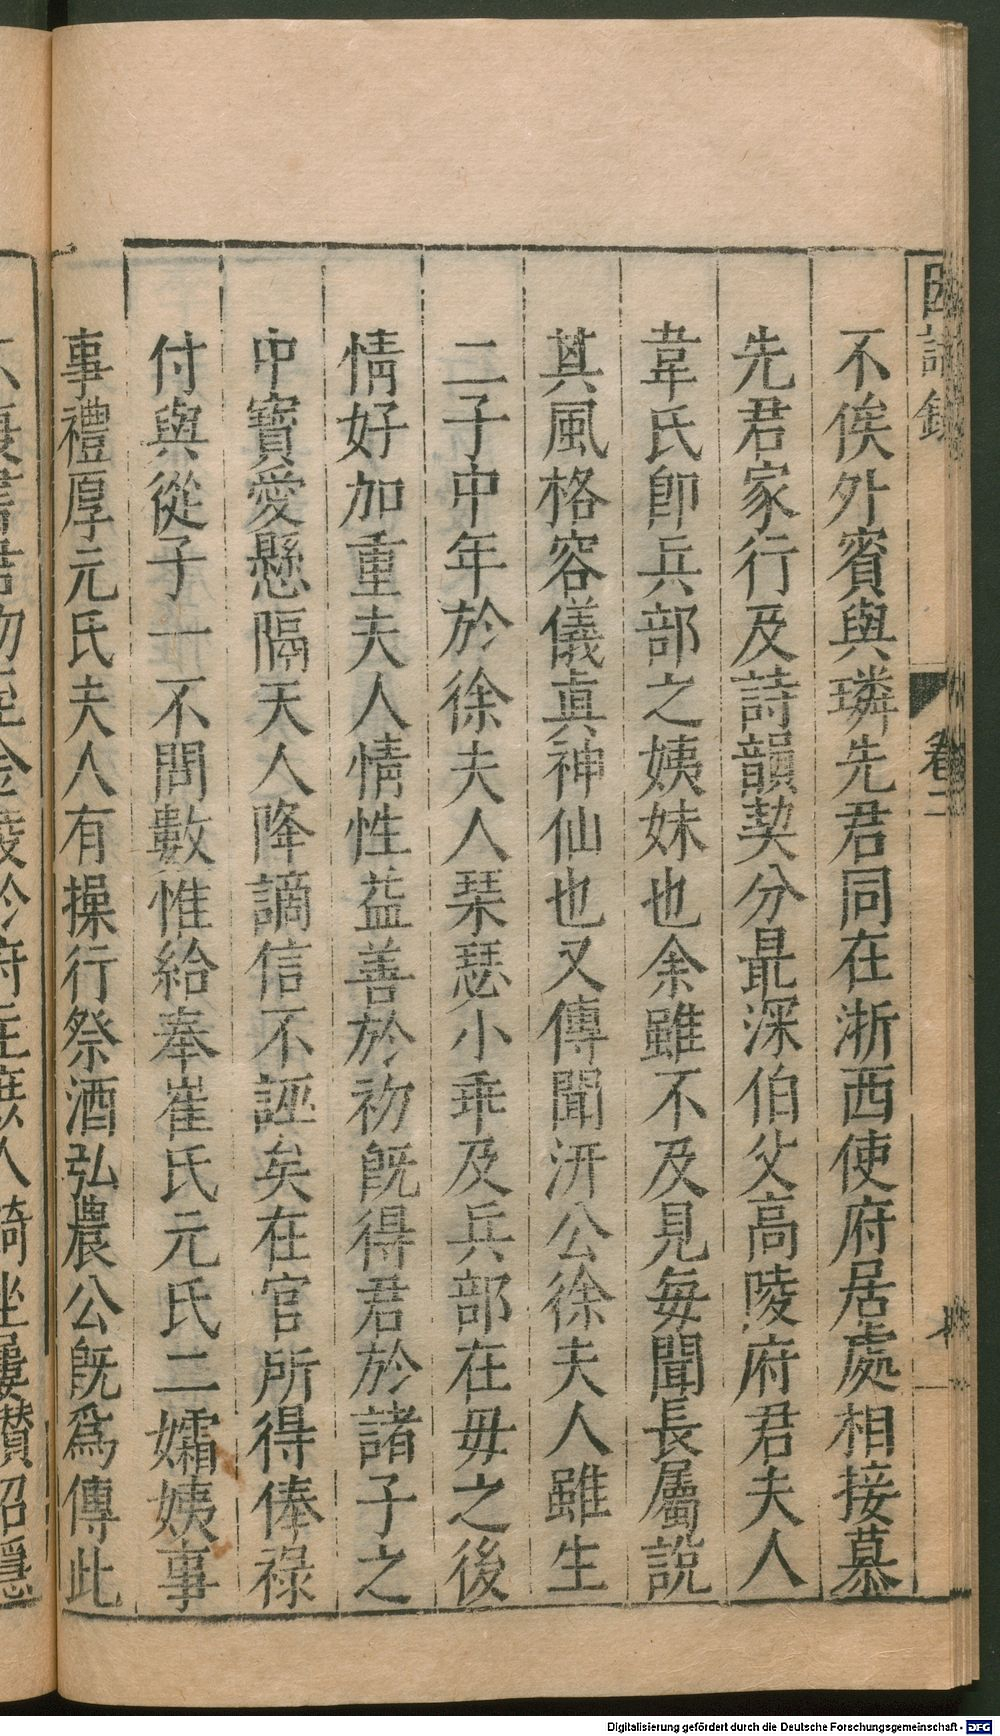 因話錄 卷二 七
不俟外賓與璘先君同在浙西使府居處相接慕
先君家行及詩韻契分最深伯父高陵府君夫人
韋氏卽兵部之姨妹也余雖不及見每聞長屬說
其風格容儀真神仙也又傳聞汧公徐夫人雖生
二子中年於徐夫人琹瑟小乖及兵部在毋之後
情好加重夫人情性益善於初旣得君於諸子之
中寶愛懸隔天人降謫信不誣矣在官所得俸祿
付與從子一 不問數惟給奉崔氏元氏二孀姨事
事禮厚元氏夫人有操行祭酒弘農公旣爲傳此
Digitalisierung gefördert durch die Deutsche Forschungsgemeinschaft - DFG